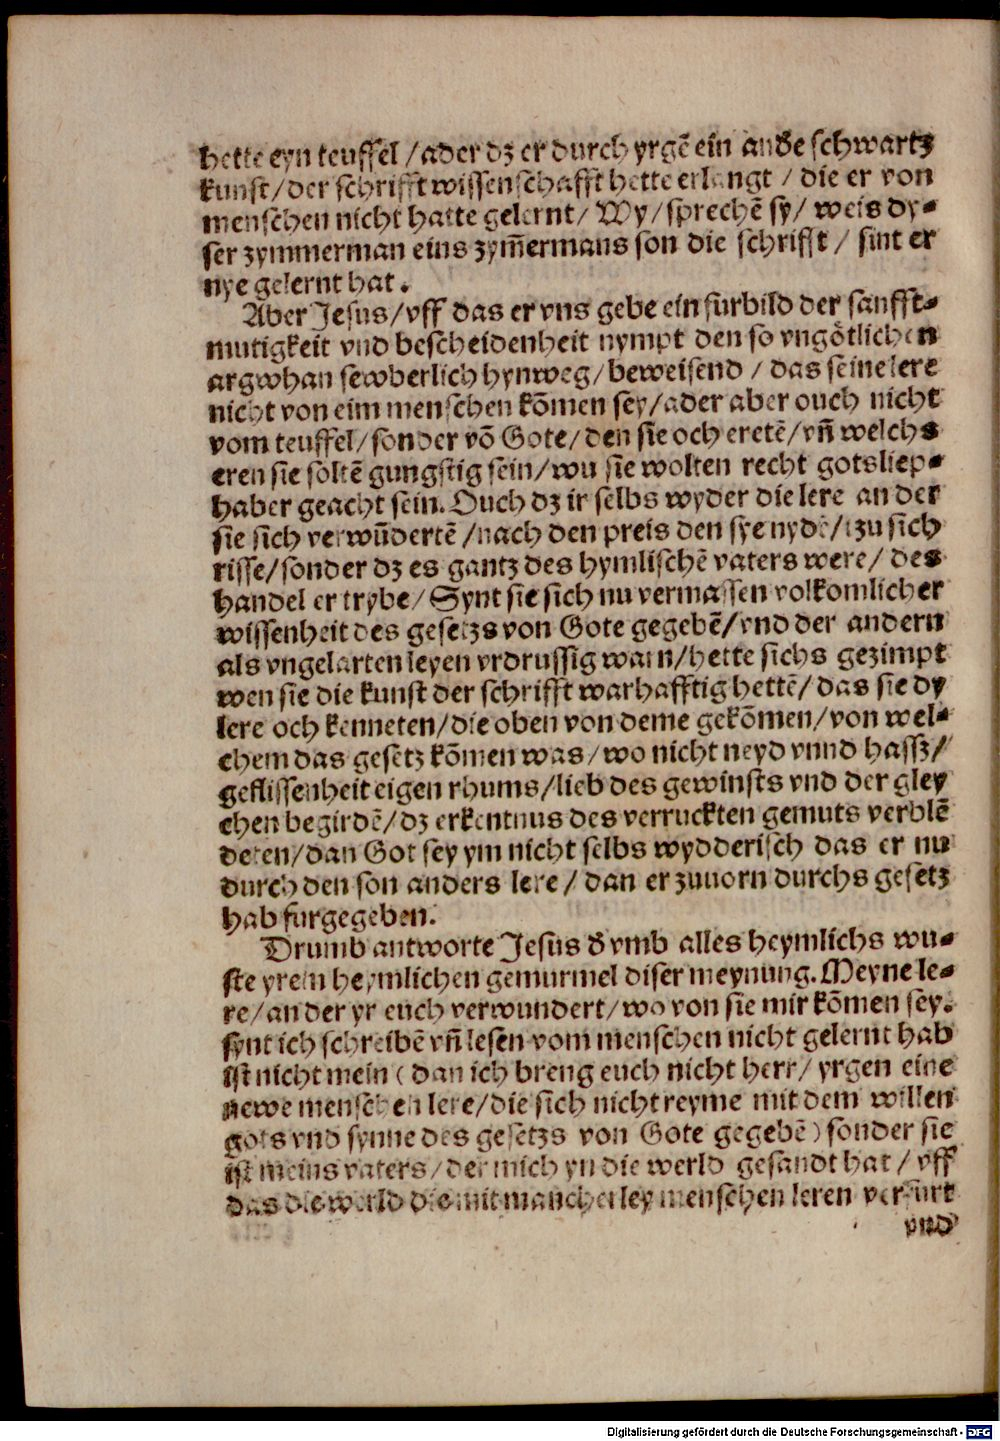 hette eyn teuffel / ader dz er durch yrgē ein and̾e schwartz
kunst / der schrifft wissenschafft hette erlangt / die er von
menschen nicht hatte gelernt / Wy / sprechē sy / weis dy⸗
ser zymmerman eins zym̄ermans son die schrifft / sint er
nye gelernt hat .
Aber Jesus / vff das er vns gebe ein furbild der sanfft⸗
mutigkeit vnd bescheidenheit nympt den so vngötlichen
argwhan sewberlich hynweg / beweisend / das seine lere
nicht von eim menschen kōmen sey / ader aber ouch nicht
vom teuffel / sonder vō Gote / den sie och eretē / vn̄ welchs
eren sie soltē gungstig sein / wu sie wolten recht gotsliep⸗
haber geacht sein. Ouch dz ir selbs wyder die lere an der
sie sich verwūdertē / nach den preis den sye nydē / tzu sich
risse / sonder dz es gantz des hymlischē vaters were / des
handel er trybe / Synt sie sich nu vermassen volkomlicher
wissenheit des gesetzs von Gote gegebē / vnd der andern
als vngelarten leyen vrdrussig warn / hette sichs gezimpt
wen sie die kunst der schrifft warhafftig hettē / das sie dy
lere och kenneten / die oben von deme gekōmen / von wel⸗
chem das gesetz kōmen was / wo nicht neyd vnnd hassz /
geflissenheit eigen rhums / lieb des gewinsts vnd der gley
chen begirdē / dz erkentnus des verruckten gemuts verblē
deten / dan Got sey ym nicht selbs wydderisch das er nu
durch den son anders lere / dan er zuuorn durchs gesetz
hab furgegeben.
Drumb antworte Jesus d̾ vmb alles heymlichs wu⸗
ste yrem heymlichen gemurmel diser meynung. Meyne le⸗
re / an der yr euch verwundert / wo von sie mir kōmen sey.
synt ich schreibē vn̄ lesen vom menschen nicht gelernt hab
ist nicht mein ( dan ich breng euch nicht herr / yrgen eine
newe menschen lere / die sich nicht reyme mit dem willen
gots vnd synne des gesetzs von Gote gegebē ) sonder sie
ist meins vaters / der mich yn die werld gesandt hat / vff
das die werld die mit mancherley menschen leren verfurt
vnd
Digitalisierung gefördert durch die Deutsche Forschungsgemeinschaft - DFG